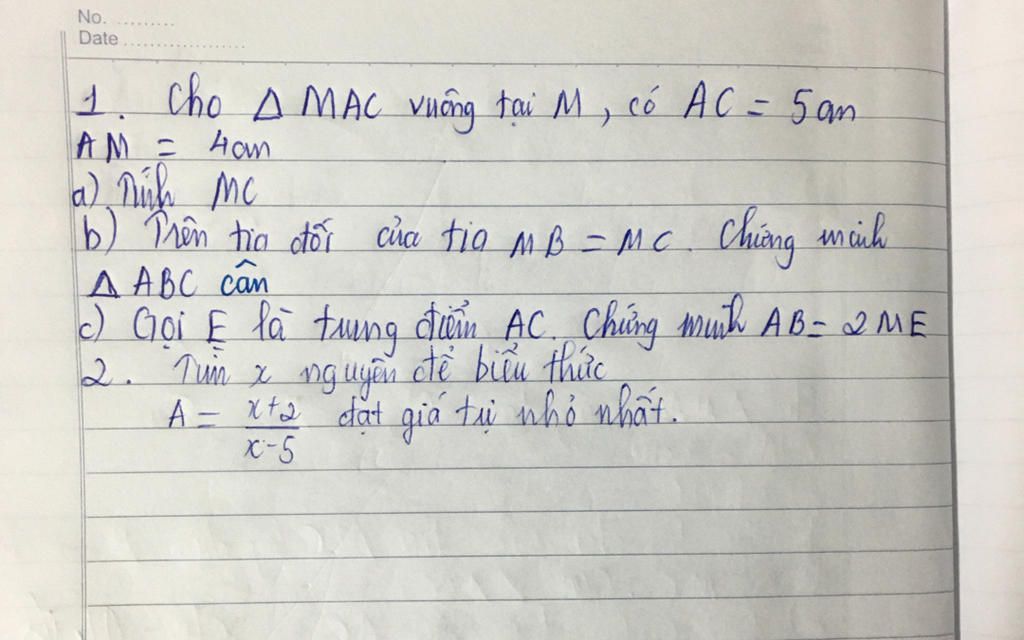 No. .........
Date ..................
1. Cho Δ MAC vuông tại M, có AC = 5cm
AM = 4cm
a) Tính MC
b) Trên tia đối của tia MB = MC. Chứng minh
Δ ABC cân
c) Gọi E là trung điểm AC. Chứng minh AB = 2ME
2. Tìm x nguyên để biểu thức
A = x+2 / x-5 đạt giá trị nhỏ nhất.